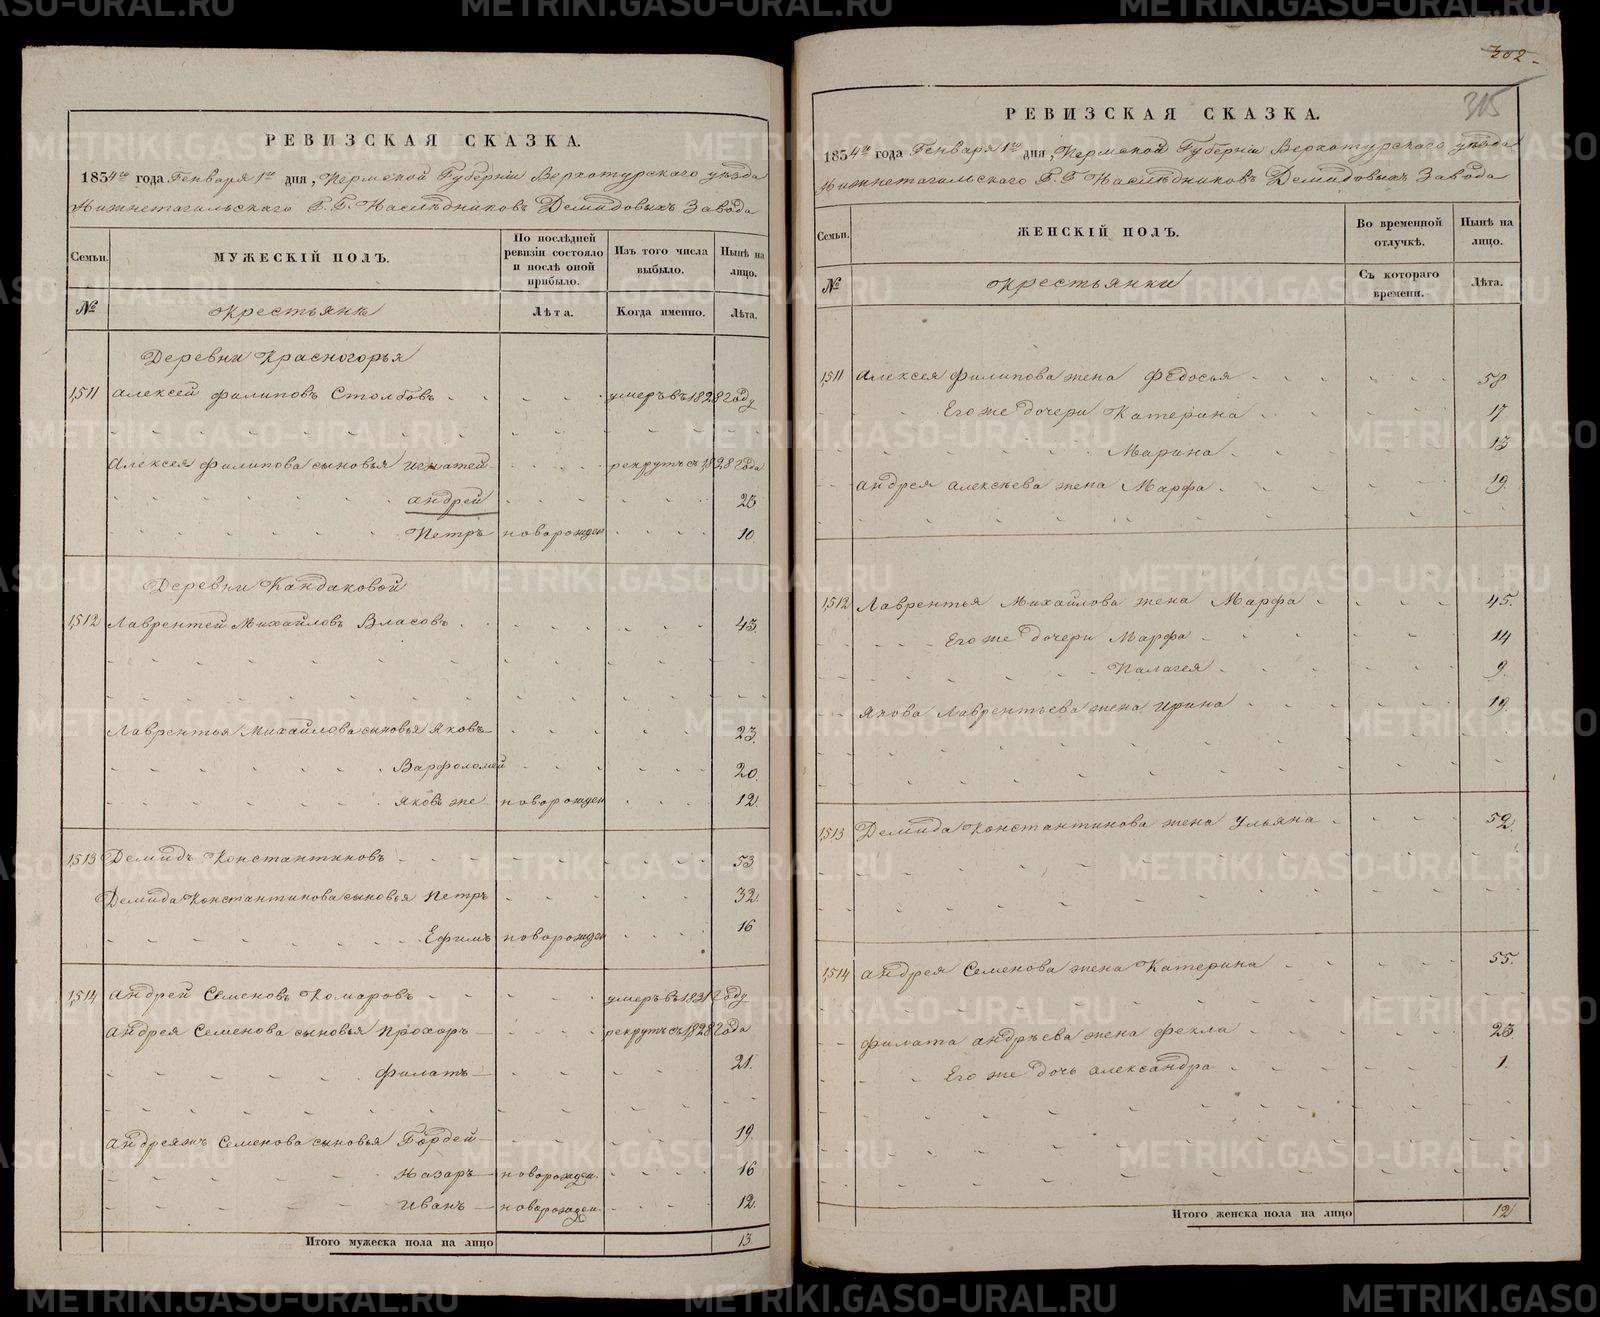 РЕВИЗСКАЯ СКАЗКА.
1834го года Генваря 1го дня, Пермской Губернiи Верхотурскаго уѣзда
Нижнетагильскаго Г. Г. Наслѣдниковъ Демидовыхъ Завода
Семьи.
МУЖЕСКIЙ ПОЛЪ.
По послѣдней ревизiи состояло и послѣ оной прибыло.
Изъ того числа выбыло.
Нынѣ на лицо.
№ Крестьянѣ Лѣта. Когда именно. Лѣта.
Деревни Красногорья
1511 Алексей Филиповъ Столбовъ умеръ въ 1828 году
Алексея Филипова сыновья Игнатей рекрутъ съ 1828 года
Андрей 25
Петръ новорожден 10
Деревни Кандаковой
1512 Лаврентей Михайловъ Власовъ 43.
Лаврентья Михайлова сыновья Яковъ 23.
Варфоломей 20.
Яковъ же новорожден 12.
1513 Демидъ Константиновъ 53
Демида Константинова сыновья Петръ 32.
Ефимъ новорожден 16
1514 Андрей Семеновъ Комаровъ умеръ въ 1831 году
Андрея Семенова сыновья Прохоръ рекрутъ съ 1828 года
Филатъ 21.
Андреяжъ Семенова сыновья Гордей 19.
Назаръ новорожден. 16
Иванъ новорожден. 12.
Итого мужеска пола на лицо 13.
302
315
РЕВИЗСКАЯ СКАЗКА.
1834го года Генваря 1го дня, Пермской Губернiи Верхотурскаго уѣзда
Нижнетагильскаго Г. Г. Наслѣдниковъ Демидовыхъ Завода
Семьи.
ЖЕНСКIЙ ПОЛЪ.
Во временной отлучкѣ.
Нынѣ на лицо.
№ Крестьянки Съ котораго времени. Лѣта.
1511 Алексея Филипова жена Федосья 58
Его же дочери Катерина 17
Марина 13
Андрея Алексѣева жена Марфа 19.
1512 Лаврентья Михайлова жена Марфа 45.
Его же дочери Марфа 14
Палагея 9.
Якова Лаврентьева жена Ирина 19.
1513 Демида Константинова жена Ульяна 52.
1514 Андрея Семенова жена Катерина 55.
Филата Андрѣева жена Фекла 23.
Его же дочь Александра 1.
Итого женска пола на лицо 12
METRIKI.GASO-URAL.RU